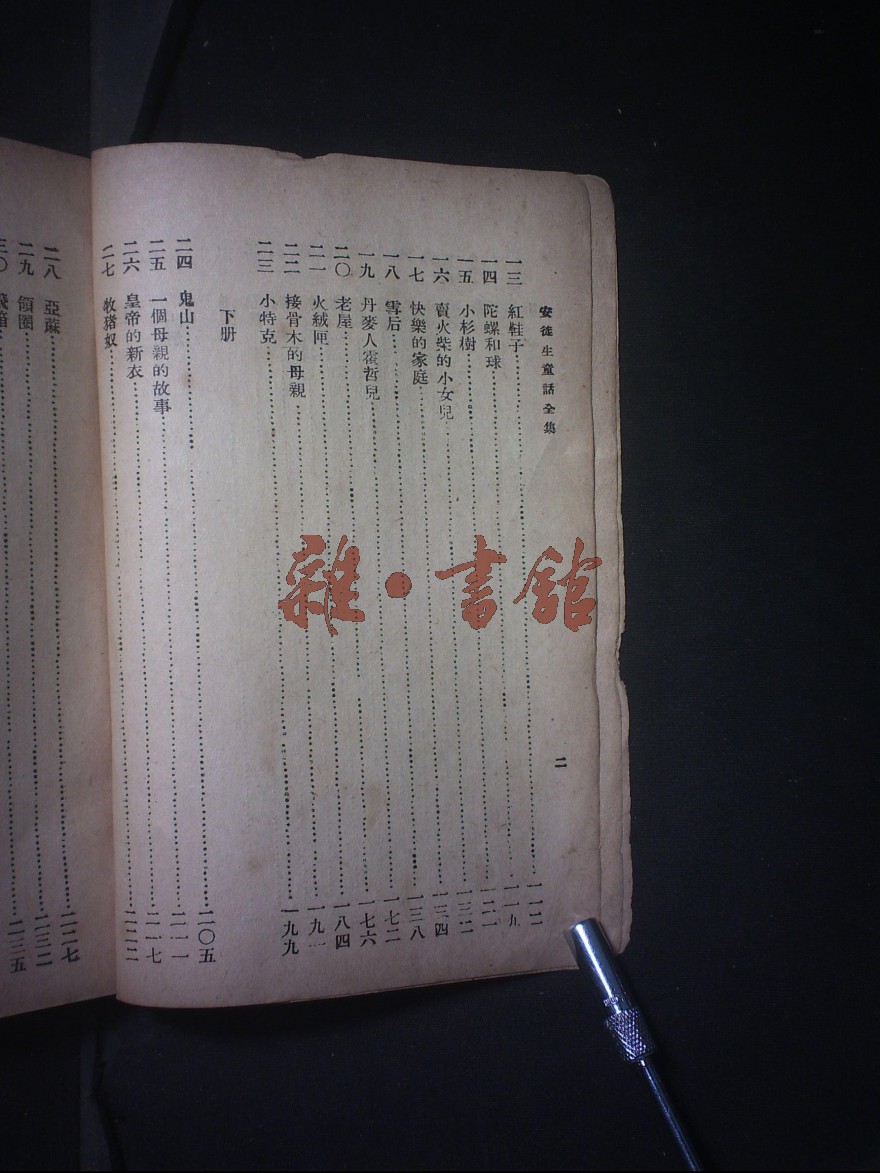 安徒生童話全集
二
一三 紅鞋子……一一二
一四 陀螺和球……一一九
一五 小杉樹……一二一
一六 賣火柴的小女兒……一三二
一七 快樂的家庭……一三四
一八 雪后……一三八
一九 丹麥人霍哲兒……一七二
二〇 老屋……一七六
二一 火絨匣……一八四
二二 接骨木的母親……一九一
二三 小特克……一九九
下册
二四 鬼山……二〇五
二五 一個母親的故事……二一一
二六 皇帝的新衣……二一七
二七 牧猪奴……二二二
二八 亞蔴……二二七
二九 領圈……二三二
三〇 箱……二三五
雜·書館